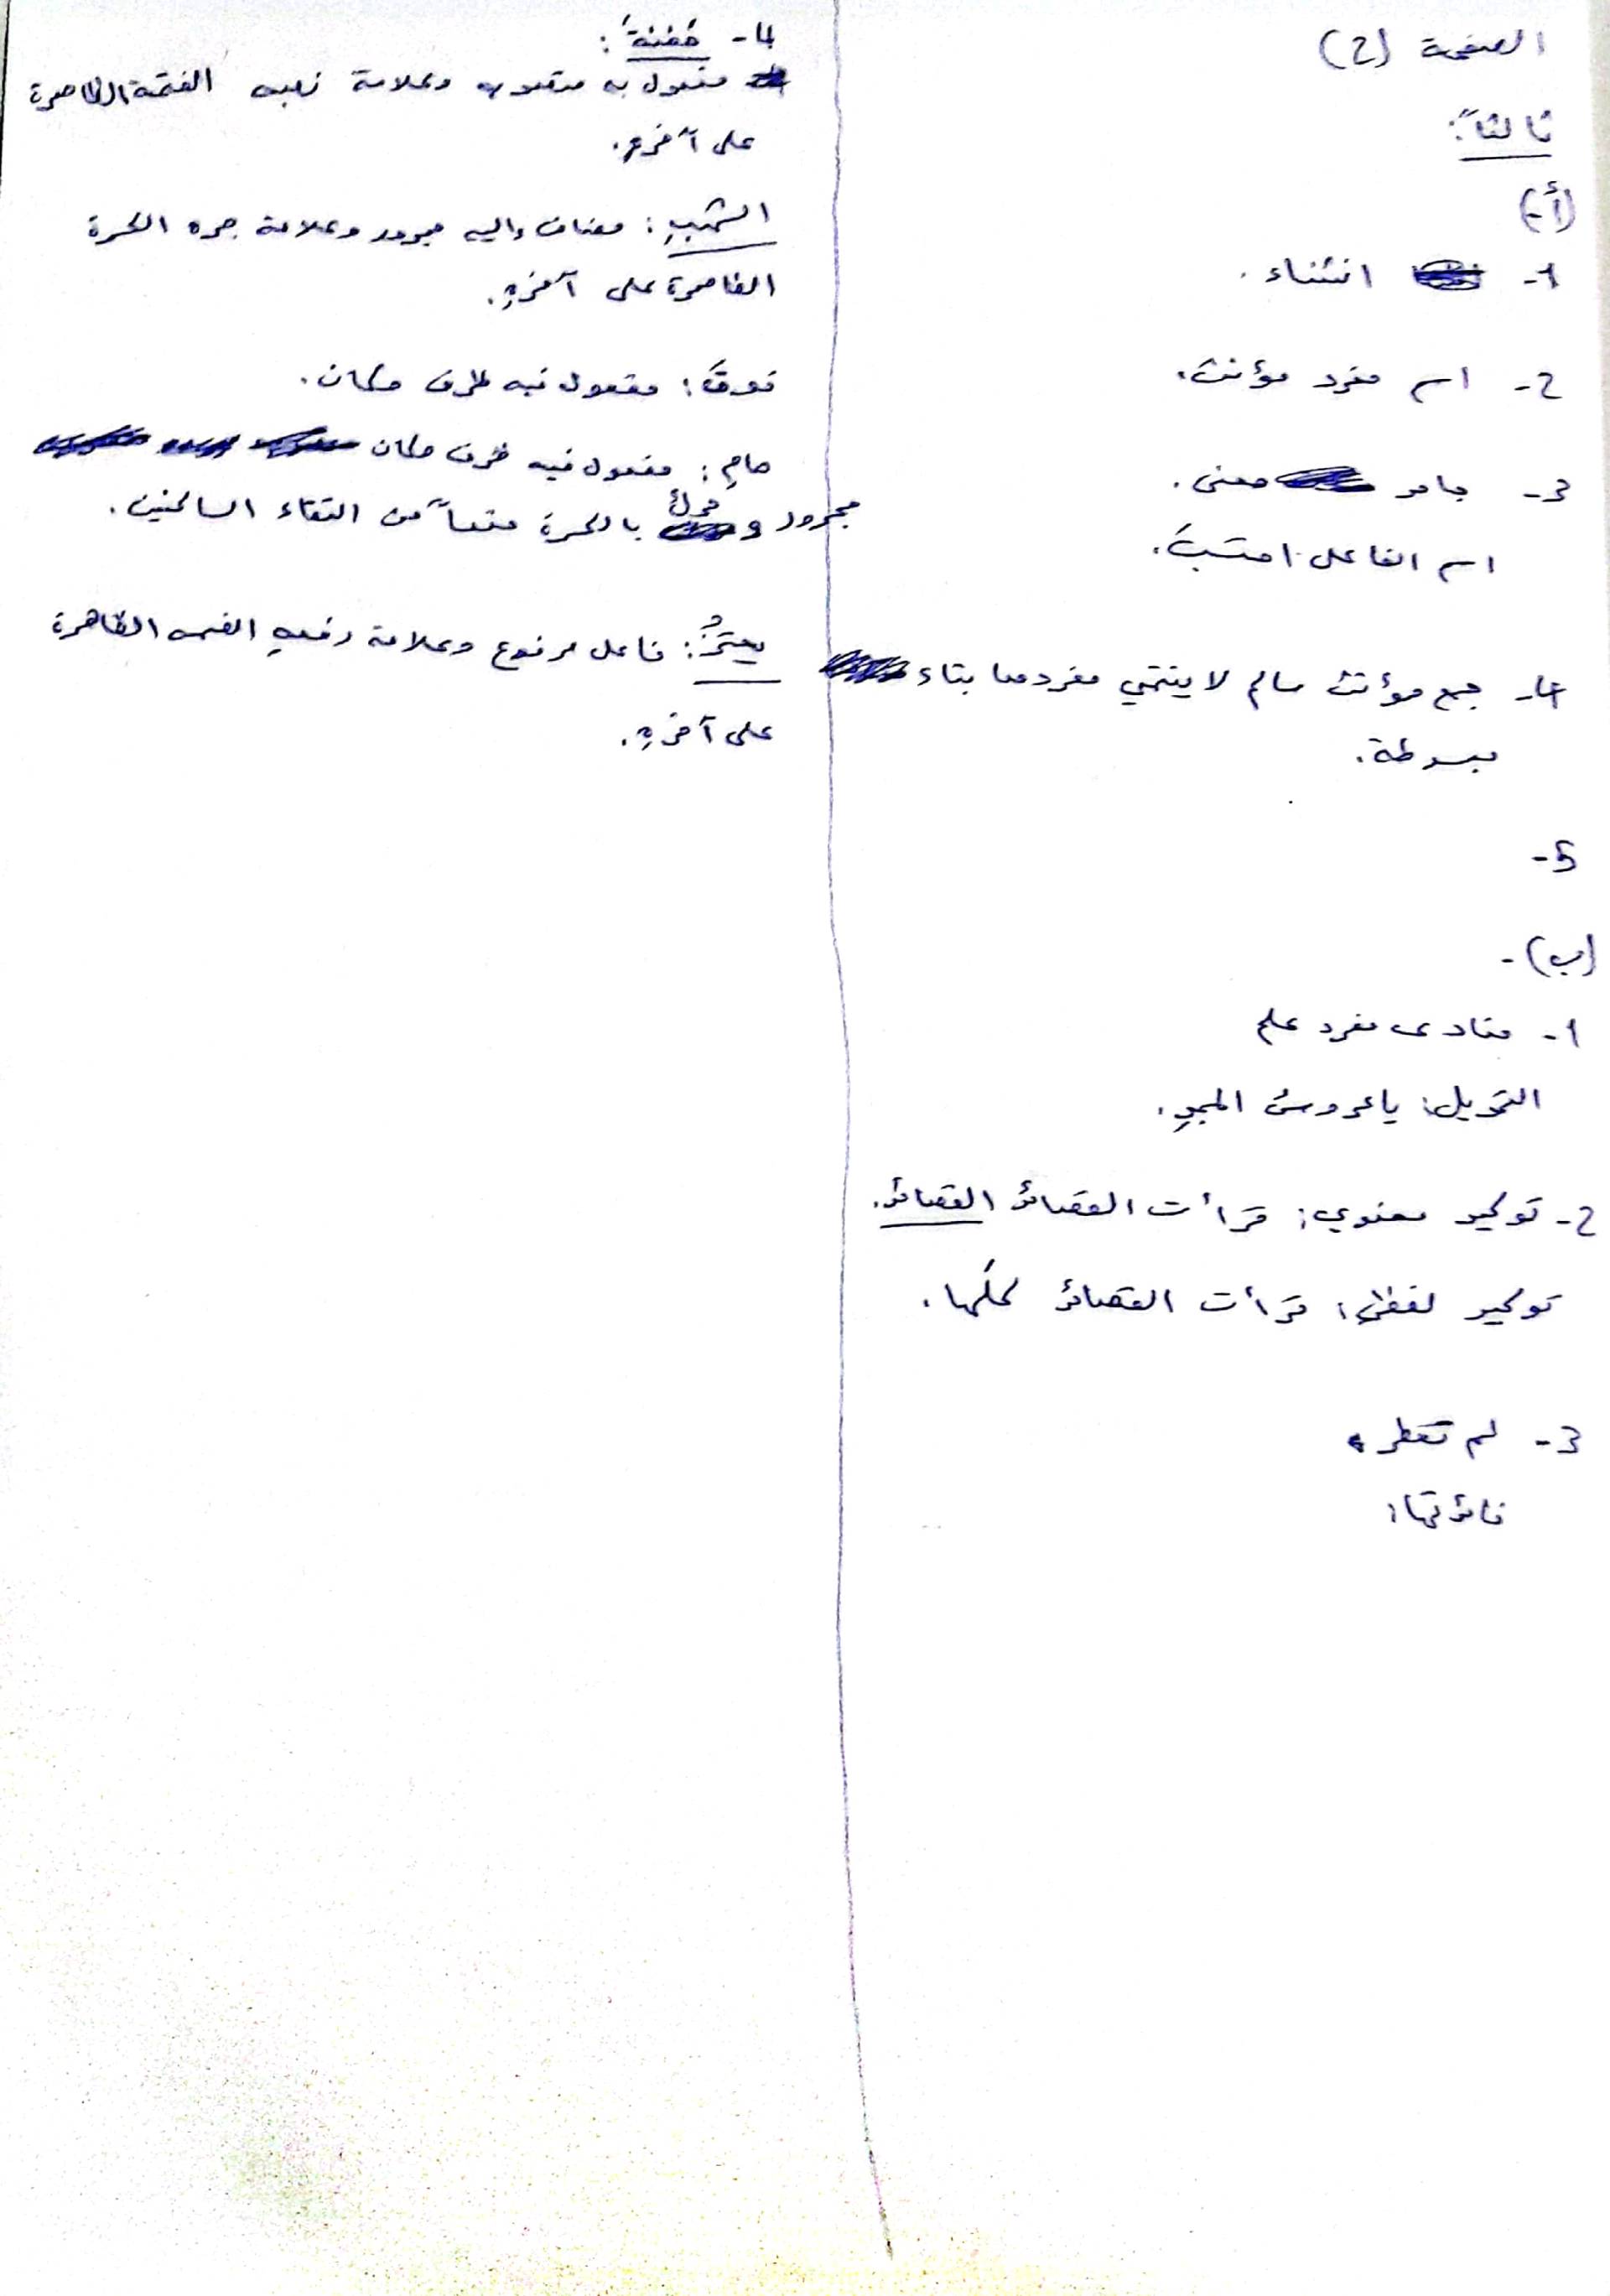 الصفحة (2)
ثالثاً:
(أ-)
1- انثناء.
2- اسم مفرد مؤنث.
3- جامد معنى.
اسم الفاعل:
4- جمع مؤنث سالم لا ينتهي مفردها بتاء
مبسوطة.
5-
(ب)-
1- منادى مفرد علم
التحويل: يا عروسُ المجدِ.
2- توكيد معنوي: قرأت القصائد القصائد.
توكيد لفظي: قرأت القصائد كلَّها.
3- لم تقطر
فائدتها:
4- حفنةً:
مفعول به منصوب وعلامة نصبه الفتحة الظاهرة
على آخره.
الشهبِ: مضاف إليه مجرور وعلامة جره الكسرة
الظاهرة على آخرهِ.
فوقَ: مفعول فيه ظرف مكان.
هامِ: مفعول فيه ظرف مكان
مجرور و حركَ بالكسرة منعاً من التقاء الساكنين.
يعتزُّ: فاعل مرفوع وعلامة رفعهِ الضمه الظاهرة
على آخرهِ.